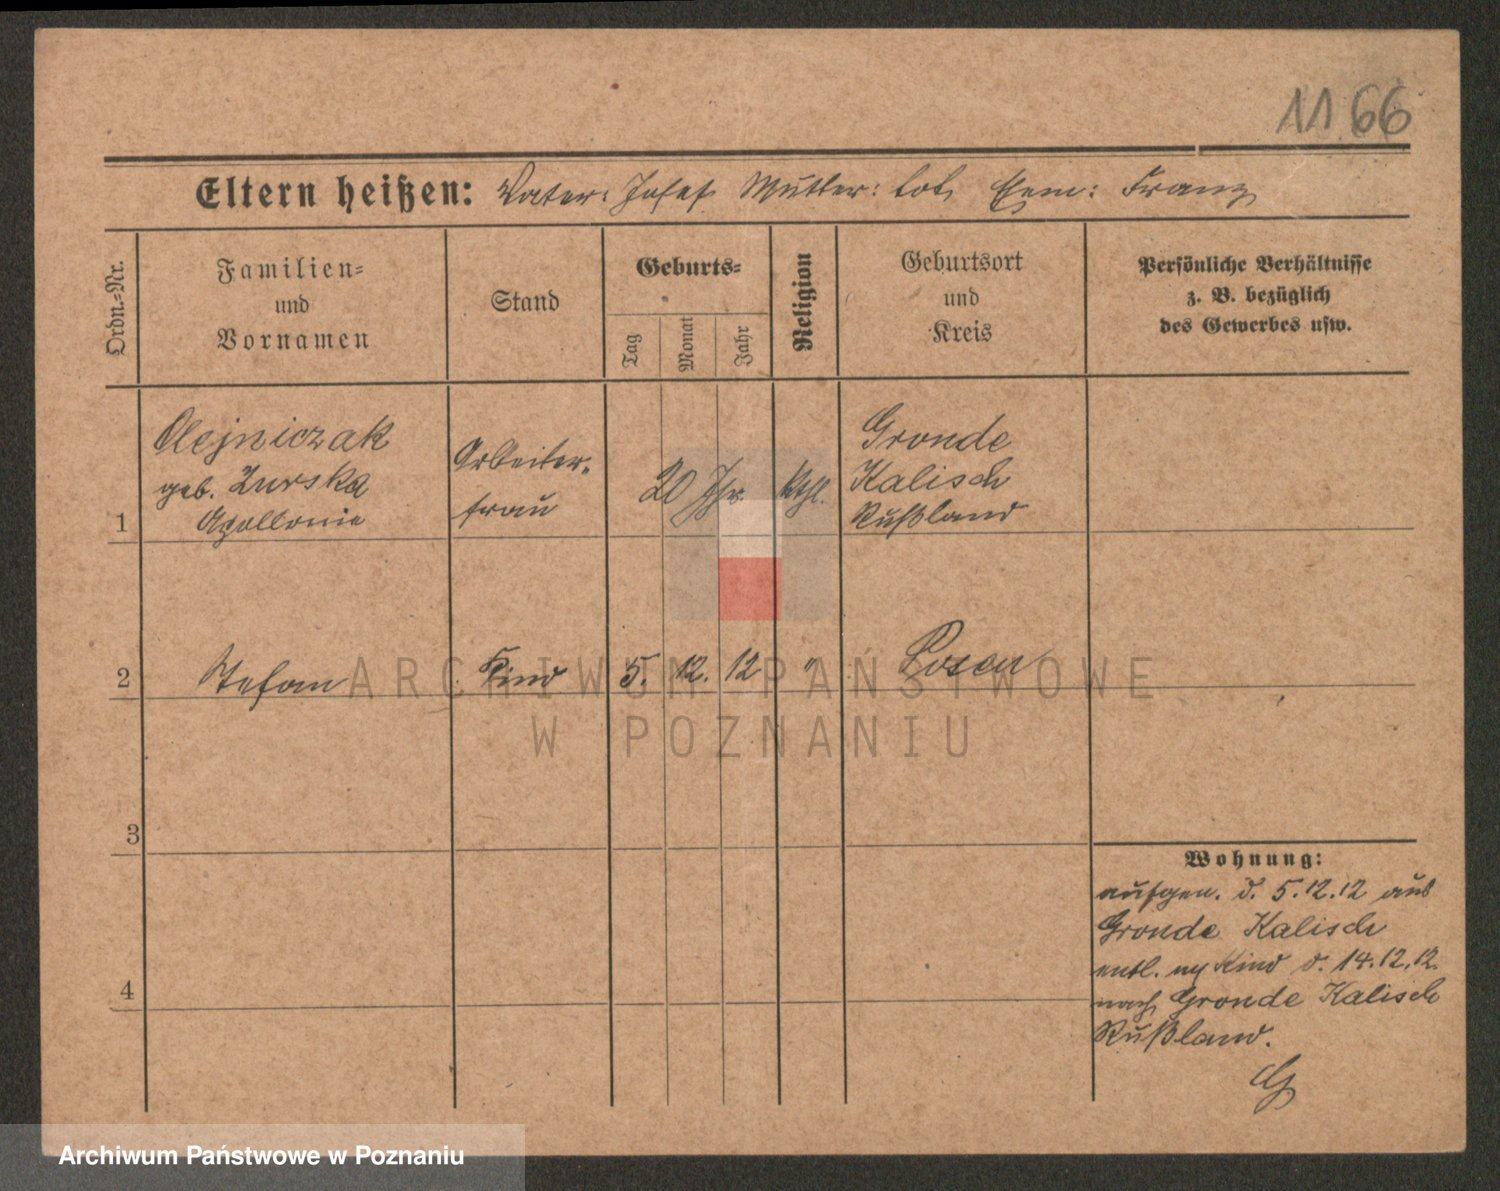 1166
Eltern heißen: Vater: Josef Mutter: tot, Eem: Franz
Ordn.-Nr.
Familien-
und
Vornamen
Stand
Geburts-
Tag
Monat
Jahr
Religion
Geburtsort
und
Kreis
Persönliche Verhältnisse
z. B. bezüglich
des Gewerbes usw.
1
Olejniczak
geb. Zurska
Apollonie
Arbeiter-
frau
20 Jhr.
kthl.
Gronde
Kalisch
Rußland
2
Stefan
Kind
5. 12. 12
"
Posen
3
4
Wohnung:
aufgen. d. 5.12.12 aus
Gronde Kalisch
entl. Kind d. 14.12.12.
nach Gronde Kalisch
Rußland.
ARCHIWUM PAŃSTWOWE
W POZNANIU
Archiwum Państwowe w Poznaniu